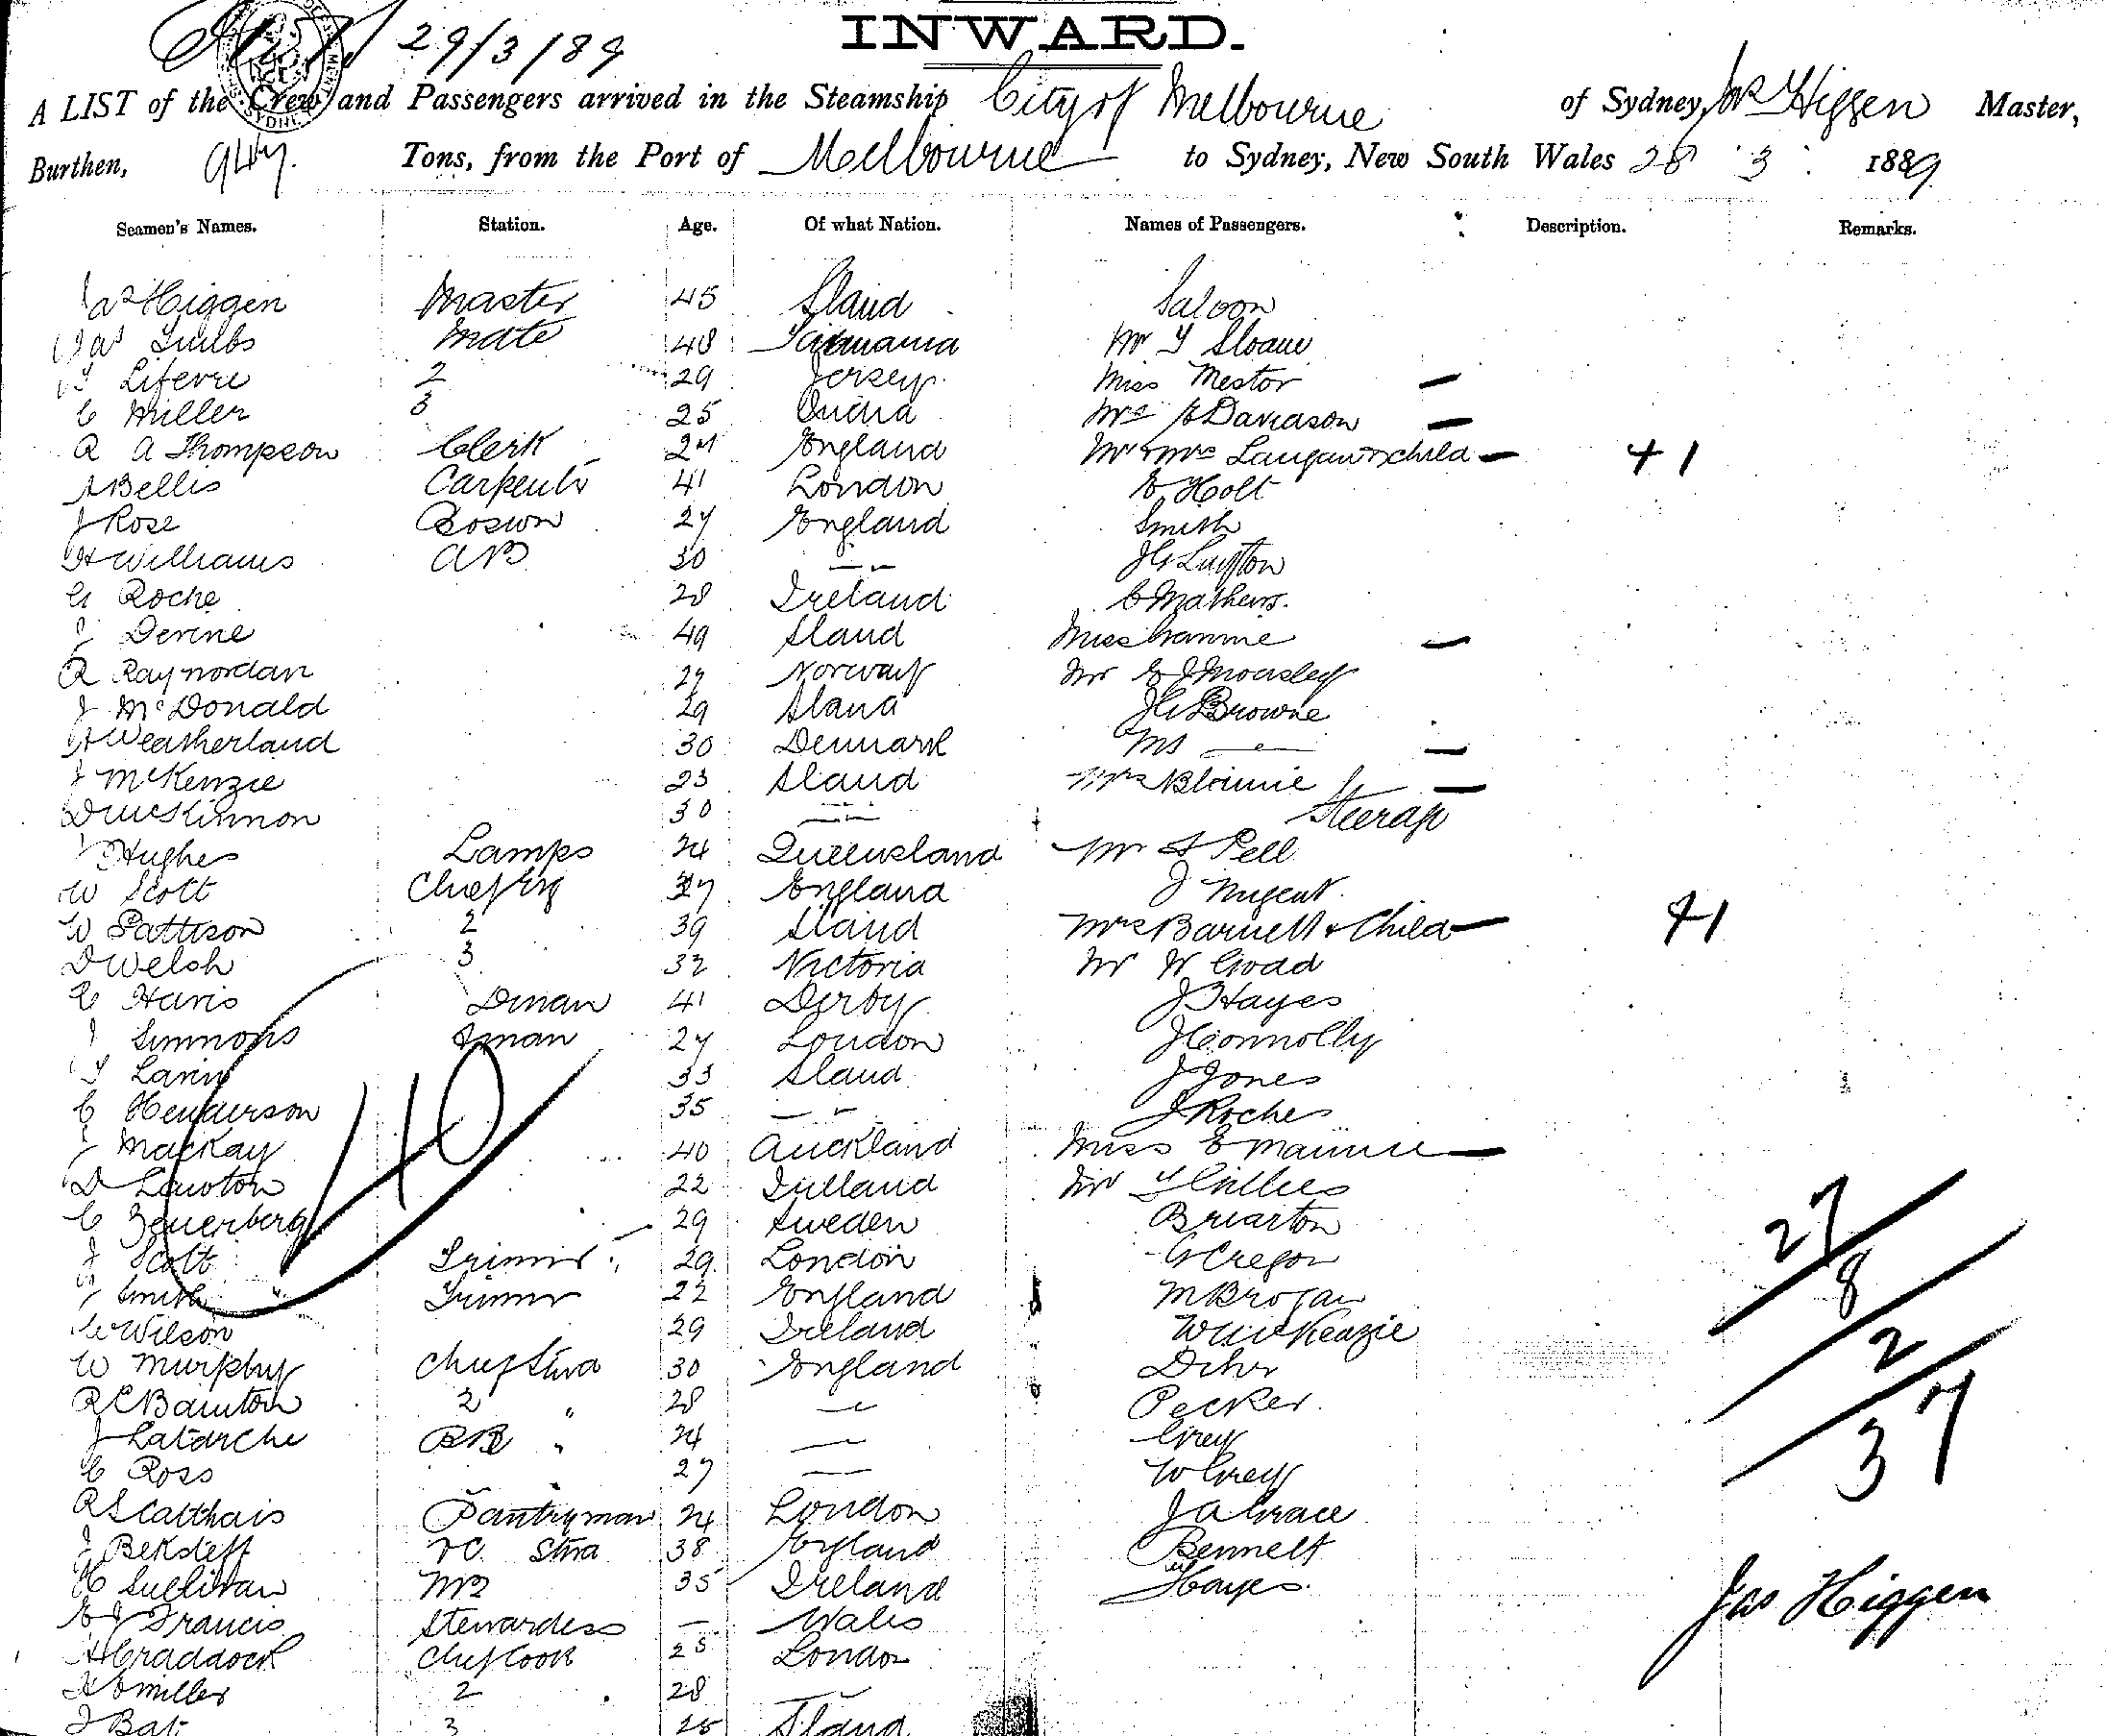 29/3/89
INWARD.
A LIST of the Crew and Passengers arrived in the Steamship City of Melbourne of Sydney, Jas Higgen Master,
Burthen, Tons, from the Port of Melbourne to Sydney, New South Wales 28 3 1889
Seamen's Names. Station. Age. Of what Nation. Names of Passengers. Description. Remarks.
Jas Higgen Master 45 Sland Saloon
Jas Mate 48 Tasmania Mr T Sloane
Lifevre 2 29 Jersey Miss Nestor
C Miller 3 25 Mrs Davidson
R A Thompson Clerk 24 England Mr & Mrs & child + 1
A Bellis Carpentr 41 London E Holt
J Rose Boswn 27 England Smith
H Williams AB 30 J G Layton
G Roche 28 Ireland C Mathews.
Devine 49 Sland Miss
R Raynordan 27 Norway Mr E J Moasley
J McDonald 29 Sland J G Browne
H Weatherland 30 Denmark Ms
J McKenzie 23 Sland Mrs Blainie
D McKinnon 30 Steerage
Hughes Lamps 24 Queensland Mr S Pell
W Scott Chief Eng 37 England J Nugent
W Pattison 2 39 Sland Mrs Barnett & Child + 1
D Welsh 3 32 Victoria Mr W Goad
C Haris Dman 41 Derby J Hayes
J Simmons Fman 27 London J Connolly
T 33 Sland J Jones
C Henderson 35 J Roche
J Mackay 40 Auckland Miss E
D Lawton 22 Ireland Mr T Gillies
C 29 Sweden Briarton
J Scott Trimr 29 London G Cregon
Smith Trimr 22 England M Brogan
Wilson 29 Ireland W McKenzie
W Murphy Chief Stwd 30 England
R C Bainton 2 " 28 Pecker
J Latarche " 24 Grey
C Ross 27 W Grey
R Pantryman 24 London J A Grace
J Stwd 38 England Bennett
H Sullivan 35 Ireland Hayes.
E J Francis Stewardess — Wales
H Craddock Chief Cook 25 London
Miller 2 28
3 25 Sland
40
27
8
2
37
Jas Higgen